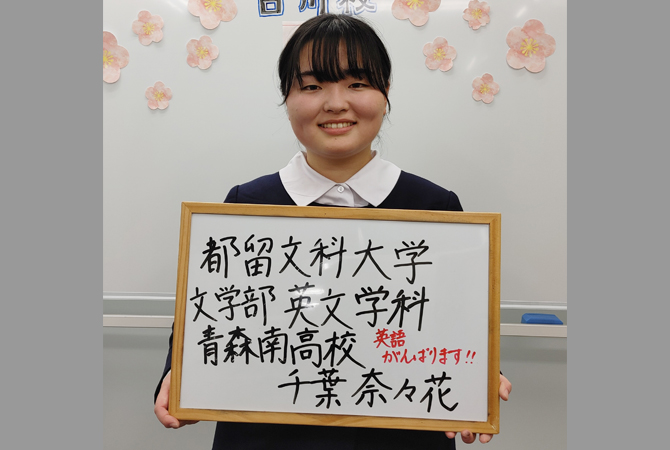 都留文科大学
文学部 英文学科
青森南高校 英語
がんばります!!
千葉 奈々花